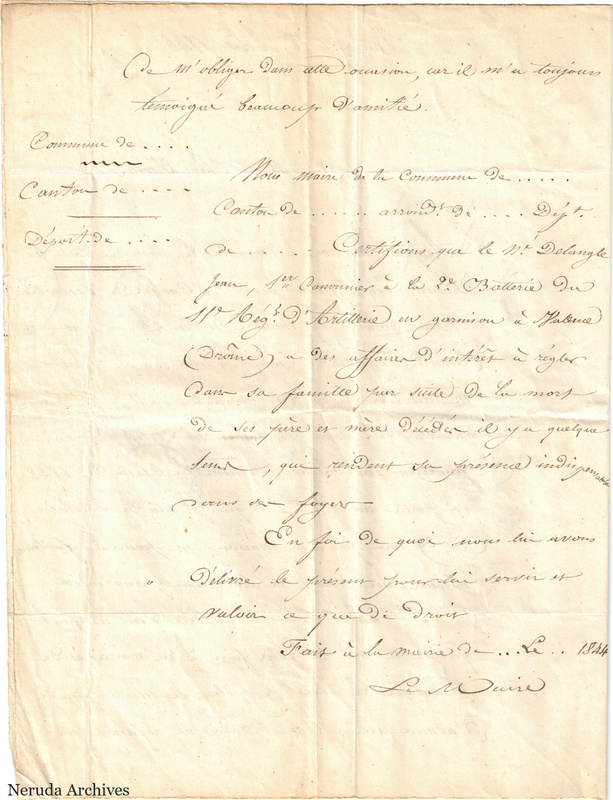 de m'obliger dans cette occasion, car il m'a toujours
temoigné beaucoup d'amitié.
Commune de ....
Canton de ....
Départ. de ....
Nous maire de la Commune de .....
Canton de ...... arrondt. de .... Dépt.
de ..... Certifions que le Né Delangle
Jean, 1er Canonnier à la 2e Batterie du
11e Régt. d'Artillerie en garnison à Valence
(Drôme) a des affaires d'intérêt à régler
dans sa famille par suite de la mort
de ses père et mère décédés il y a quelque
tems, qui rendent sa présence indispensable
dans ses foyers
En foi de quoi nous lui avons
Délivré le présent pour lui servir et
valoir ce que de droit
Fait à la mairie de ... Le .. 1844
Le Maire
Neruda Archives